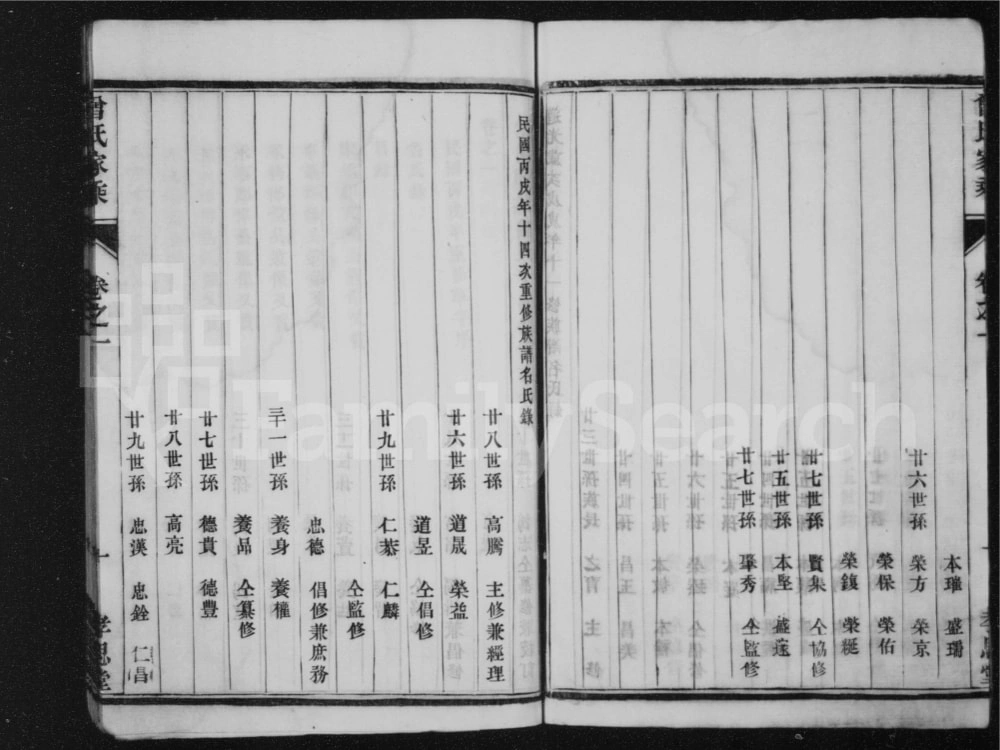 曾氏家乘
卷之一
孝思堂
本璀 盛珊
廿六世孫 榮方 榮京
榮保 榮佑
榮鎮 榮綖
廿七世孫 賢集 仝協修
廿五世孫 本堅 盛遠
廿七世孫 肇秀 仝監修
民國丙戌年十四次重修族譜名氏錄
廿八世孫 高騰 主修兼經理
廿六世孫 道晟 榮益
道昱 仝倡修
廿九世孫 仁恭 仁麟
仝監修
忠德 倡修兼庶務
三十一世孫 養身 養權
養品 仝纂修
廿七世孫 德貴 德豐
廿八世孫 高亮
廿九世孫 忠漢 忠銓 仁昌
曾氏家乘
卷之一
十
孝思堂
FamilySearch